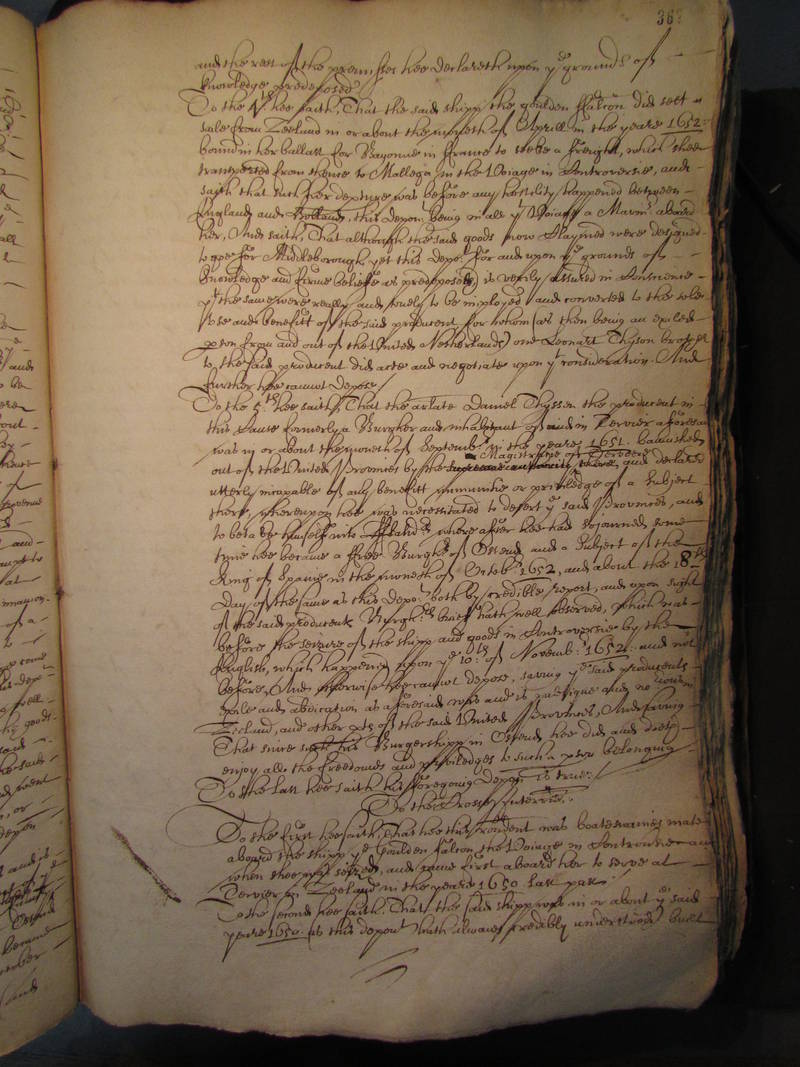 363
and the rest of the premisses hee declareth upon ye grounds of
knowledge predeposed
To the 4th hee saith, That the said shipp the goulden ffalcon did sett
sale from Zeeland in or about the moneth of Aprill in the yeare 1652
bound in her ballast for Bayonne in ffrance to seeke a freight, which shee
transported from thence to Mallega in the Voiage in Controversie, and
saith that such her depture was before any hostility happened betweene
England and Holland, this Depont being in all ye Voiage a Marinr aboard
her, And saith, That although the said goods now claymed were designed
to goe for Middleborough yet this Depot for and upon ye grounds of
knowledge and firme beliefe as predeposed is verily assured in Conscience
yt the same were really and soly to be imployed and converted to the sole
use and benefitt of the said producent for whom (as then being an exiled
pson from and out of the United Netherlands) one Leonart Thyson brother
to the said producent did acte and negotiate upon yt consideration. And
further hee cannot depose
To the 5th hee saith, That the arlate Daniel Thyssen the producent in
this Cause formerly a Burgher and inhabitant of and in Tervier aforesaid
was in or about the moneth of Septembr in the yeare 1651 banished
Magistrates of Terveere
out of the United Provinces by the supreame authority there, and declared
utterly incapable of any benefitt immunitie or priviledge of a Subject
there, whereupon hee was necessitated to desert ye said Provinces, and
to betake himself into fflandrs, where after hee had sojourned some
tyme hee became a ffree Burghr of Ostend and a Subject of the
King of Spaine in the moneth of Octobr 1652, and about the 18th
Day of the same as this Depot both by credible report, and upon sight
of the said producents Burghrs briefe hath well observed, which was
before the seizure of the shipp and goods in Controversie by the
English, which happened upon ye 10th of Novembr: 1652: and not
before, And otherwise hee cannot depose, saving ye said producents
exile and abdication as aforesaid was and is notorious and no[...] in
Zeeland, and other pts of the said United Provinces, And saving
That since such his Burgershipp in Ostend hee did and doth
enjoy all the freedomes and priviledges to such a pson belonging
To the last hee saith his foregoing Depon is true:
To the Crosse Interries:
To the first hee saith, That hee this rendent was boatswaines mate
aboard the shipp ye Goulden falcon the Voiage in Controversie and
when shee was seized, and came first aboard her to serve at
Tervier in Zeeland in the yeare 1650 last past
To the second hee saith, That the said shipp was in or about ye said
yeare 1650 as this depont hath alwaies credibly understood built